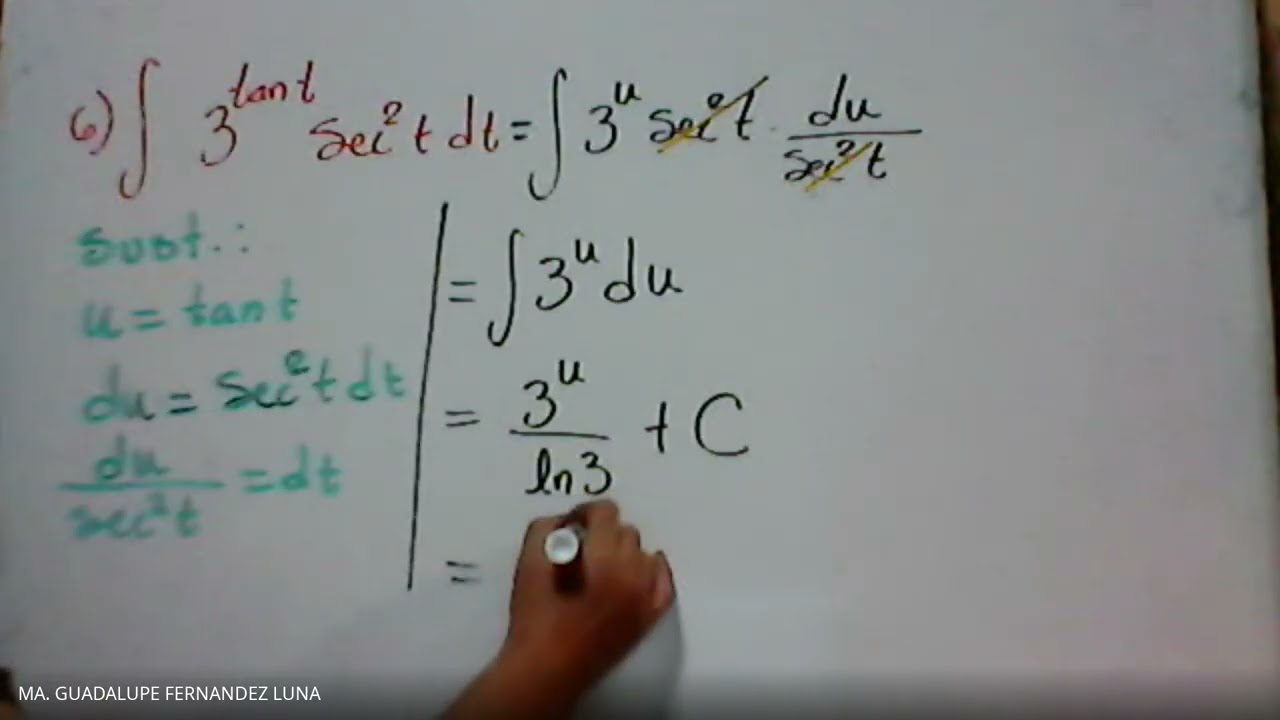 6) ∫ 3^{tan t} sec² t dt = ∫ 3^u sec² t · du / sec² t
sust.:
u = tan t
du = sec² t dt
du / sec² t = dt
= ∫ 3^u du
= 3^u / ln 3 + C
=
MA. GUADALUPE FERNANDEZ LUNA